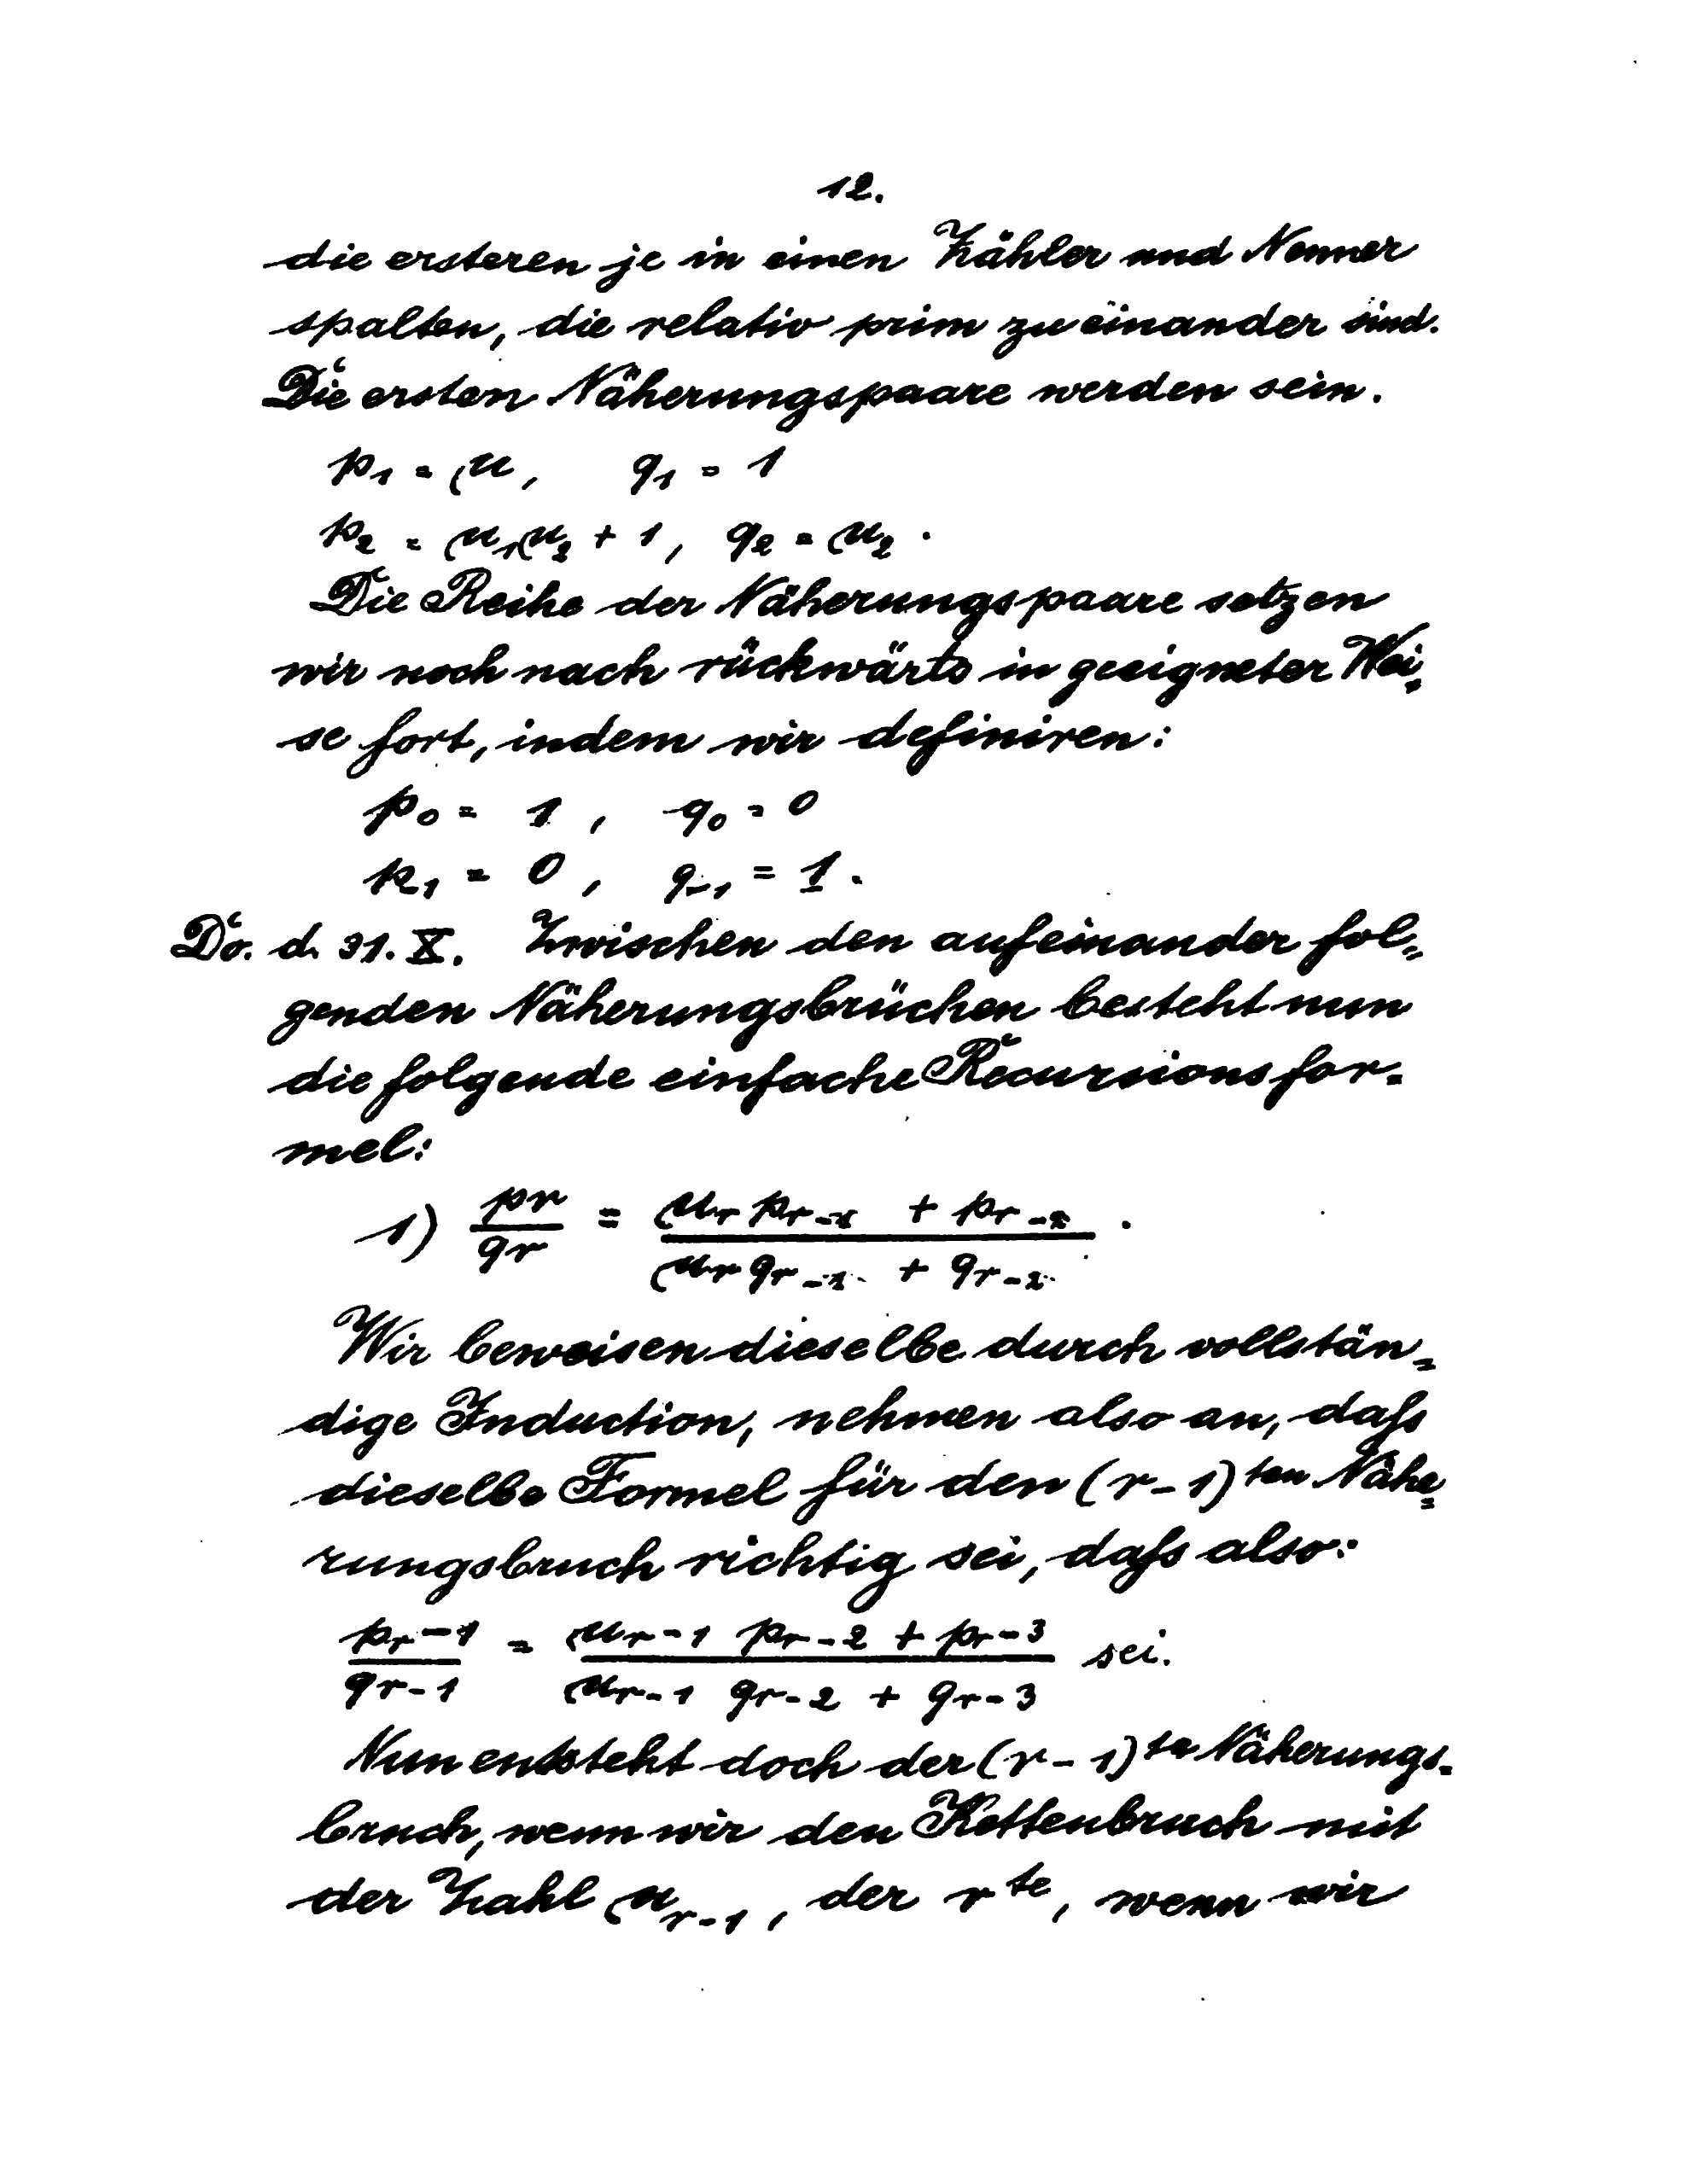 12.
die ersteren je in einen Zähler und Nenner
spalten, die relativ prim zu einander sind.
Die ersten Näherungspaare werden sein.
p₁ = μ, q₁ = 1
p₂ = μ₁μ₂ + 1, q₂ = μ₂.
Die Reihe der Näherungspaare setzen
wir noch nach rückwärts in geeigneter Wei=
se fort, indem wir definiren:
p₀ = 1, q₀ = 0
p₋₁ = 0, q₋₁ = 1.
Do. d. 31. X. Zwischen den aufeinander fol=
genden Näherungsbrüchen besteht nun
die folgende einfache Recursionsfor=
mel:
1) pr/qr = (μr pr-1 + pr-2)/(μr qr-1 + qr-2).
Wir beweisen dieselbe durch vollstän=
dige Induction, nehmen also an, daß
dieselbe Formel für den (r-1)ten Nähe=
rungsbruch richtig sei, daß also:
pr-1/qr-1 = (μr-1 pr-2 + pr-3)/(μr-1 qr-2 + qr-3) sei.
Nun entsteht doch der (r-1)te Näherungs=
bruch, wenn wir den Kettenbruch mit
der Zahl μr-1, der rte, wenn wir